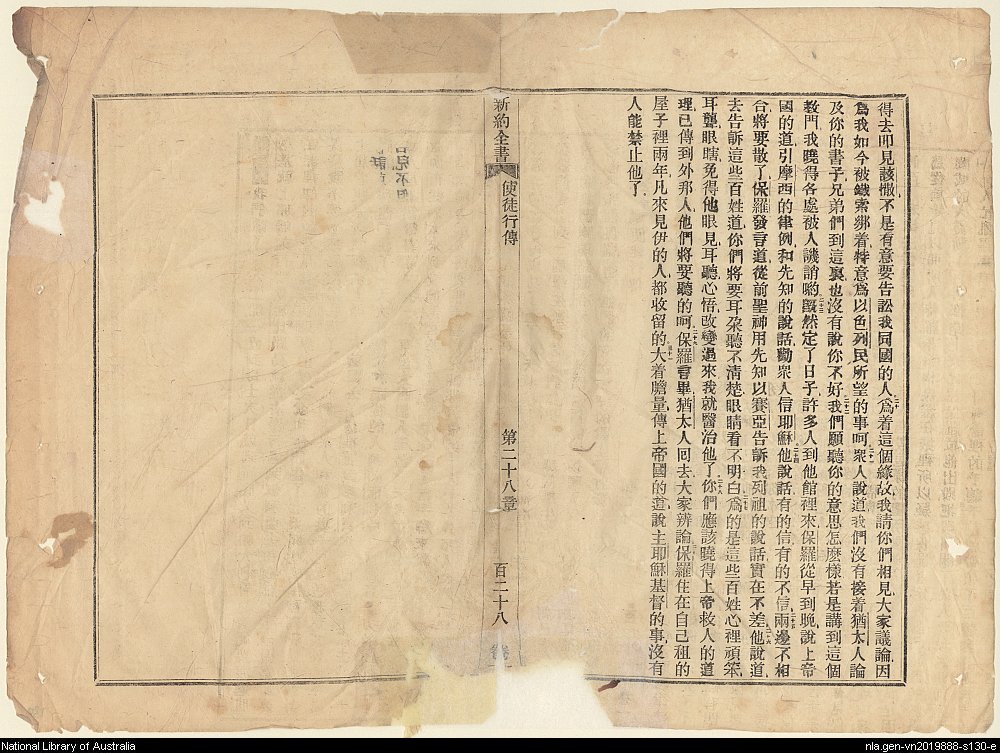 得去叩見該撒不是有意要告訟我同國的人二十爲着這個緣故我請你們相見大家議論因
爲我如今被鐵索綁着特意爲以色列民所望的事呵二十一衆人說道我們沒有接着猶太人論
及你的書子兄弟們到這裏也沒有說你不好二十二我們願聽你的意思怎麽樣若是講到這個
敎門我曉得各處被人譏誚喲二十三旣然定了日子許多人到他館裡來保羅從早到晚說上帝
國的道引摩西的律例和先知的說話勸衆人信耶穌二十四他說話有的信有的不信二十五兩邊不相
合將要散了保羅發言道從前聖神用先知以賽亞告訴我列祖的說話實在不差二十六他說道
去告訴這些百姓道你們將要耳朶聽不淸楚眼睛看不明白二十七爲的是這些百姓心裡頑笨
耳聾眼瞎免得他眼見耳聽心悟改變過來我就醫治他了二十八你們應該曉得上帝救人的道
理已傳到外邦人他們將要聽的呵二十九保羅言畢猶太人回去大家辨論三十保羅住在自己租的
屋子裡兩年凡來見伊的人都收留的三十一大着膽量傳上帝國的道說主耶穌基督的事沒有
人能禁止他了
新約全書 使徒行傳 第二十八章 百二十八
National Library of Australia
nla.gen-vn2019888-s130-e